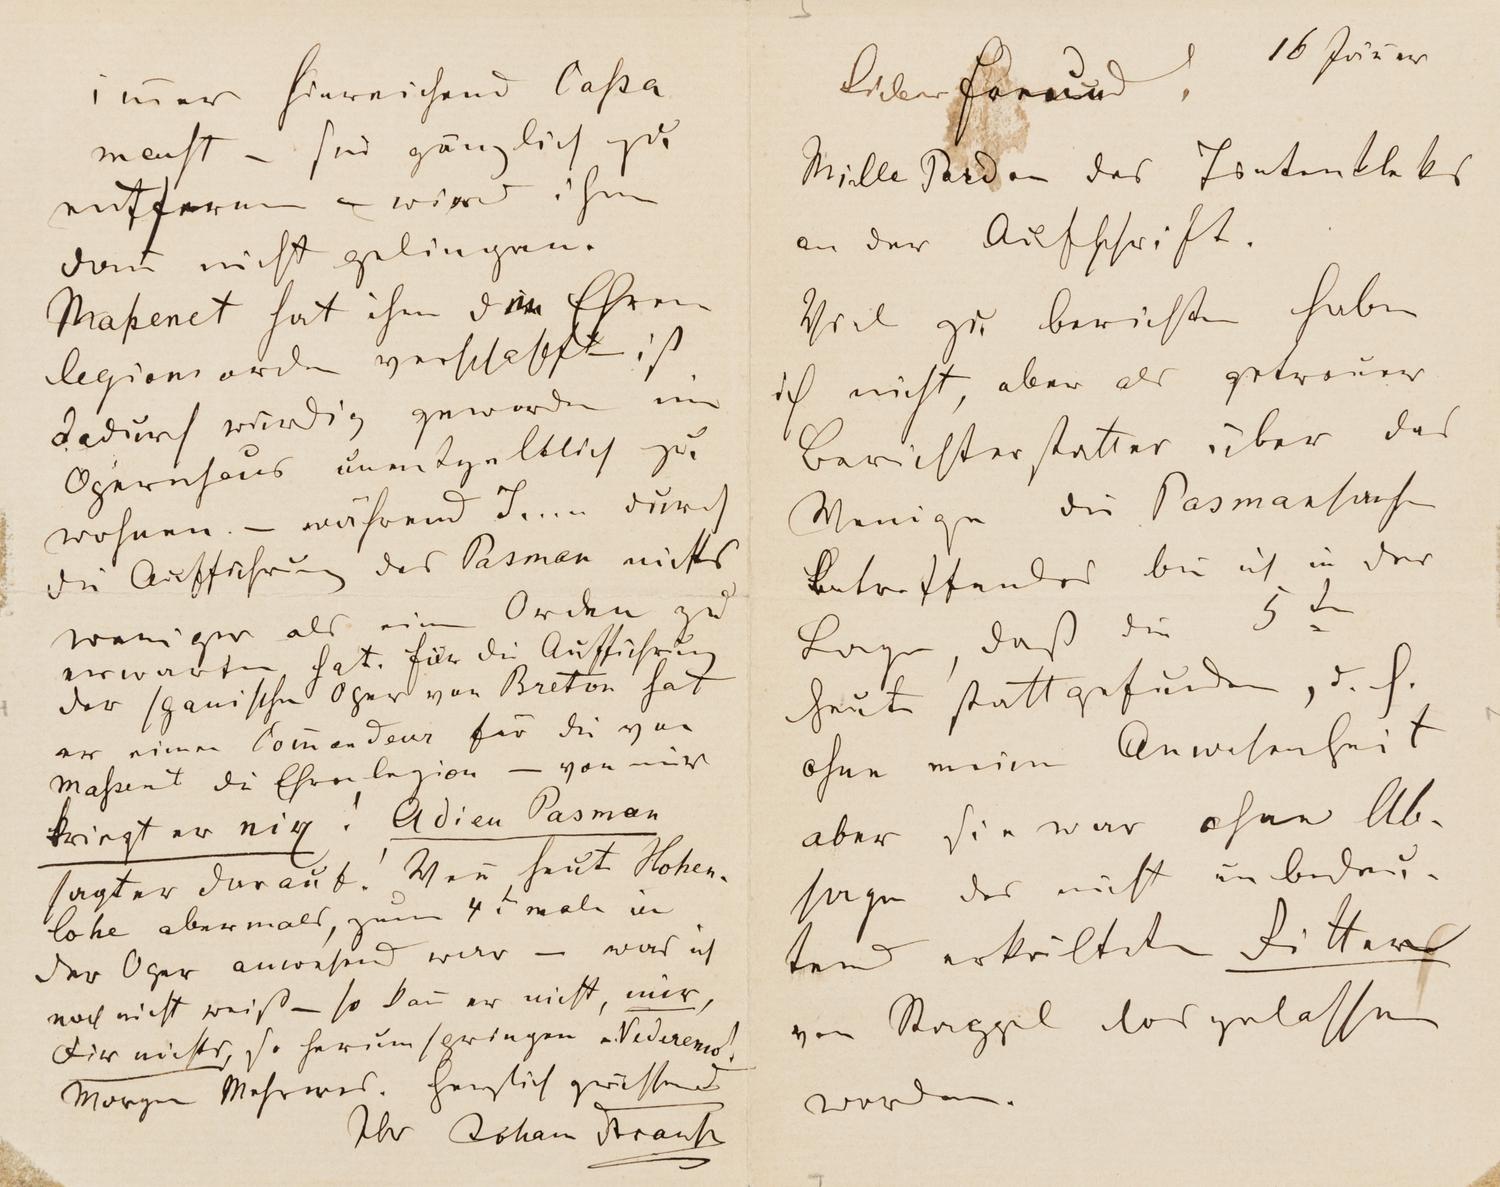 16 Jänner
Lieber Freund!
Mille Pardon des Tintenkleks
an der Aufschrift.
Viel zu berichten habe
ich nicht, aber als getreuer
Berichterstatter über das
Wenige die Pasmansache
betreffendes bin ich in der
Lage, daß die 5te
heute stattgefunden, d. h.
ohne meine Anwesenheit
aber sie war ohne Ab-
sage des nicht unbedeu-
tend erkälteten Ritters
von Stappel losgelassen
worden.
im̄er hinreichend Cassa
macht – sie gänzlich zu
entfernen – wird ihm
dan̄ nicht gelingen.
Massenet hat ihm den Ehren
legionsorden verschafft ist
dadurch würdig geworden im
Opernhaus unentgeltlich zu
wohnen. – während J.... durch
die Aufführung des Pasman nichts
weniger als einen Orden zu
erwarten hat. für die Aufführung
der spanischen Oper von Breton hat
er einen Com̄andeur für die von
Massenet die Ehrenlegion – von mir
kriegt er nix! Adieu Pasman
sagt er darauf! Wen̄ heute Hohen-
lohe abermals, zum 4t male in
der Oper anwesend war – was ich
noch nicht weiß – so kan̄ er nicht, mir,
Dir nichts, so herumspringen. Vederemo!
Morgen Mehreres. Herzlich grüssend
Ihr Johann Strauss